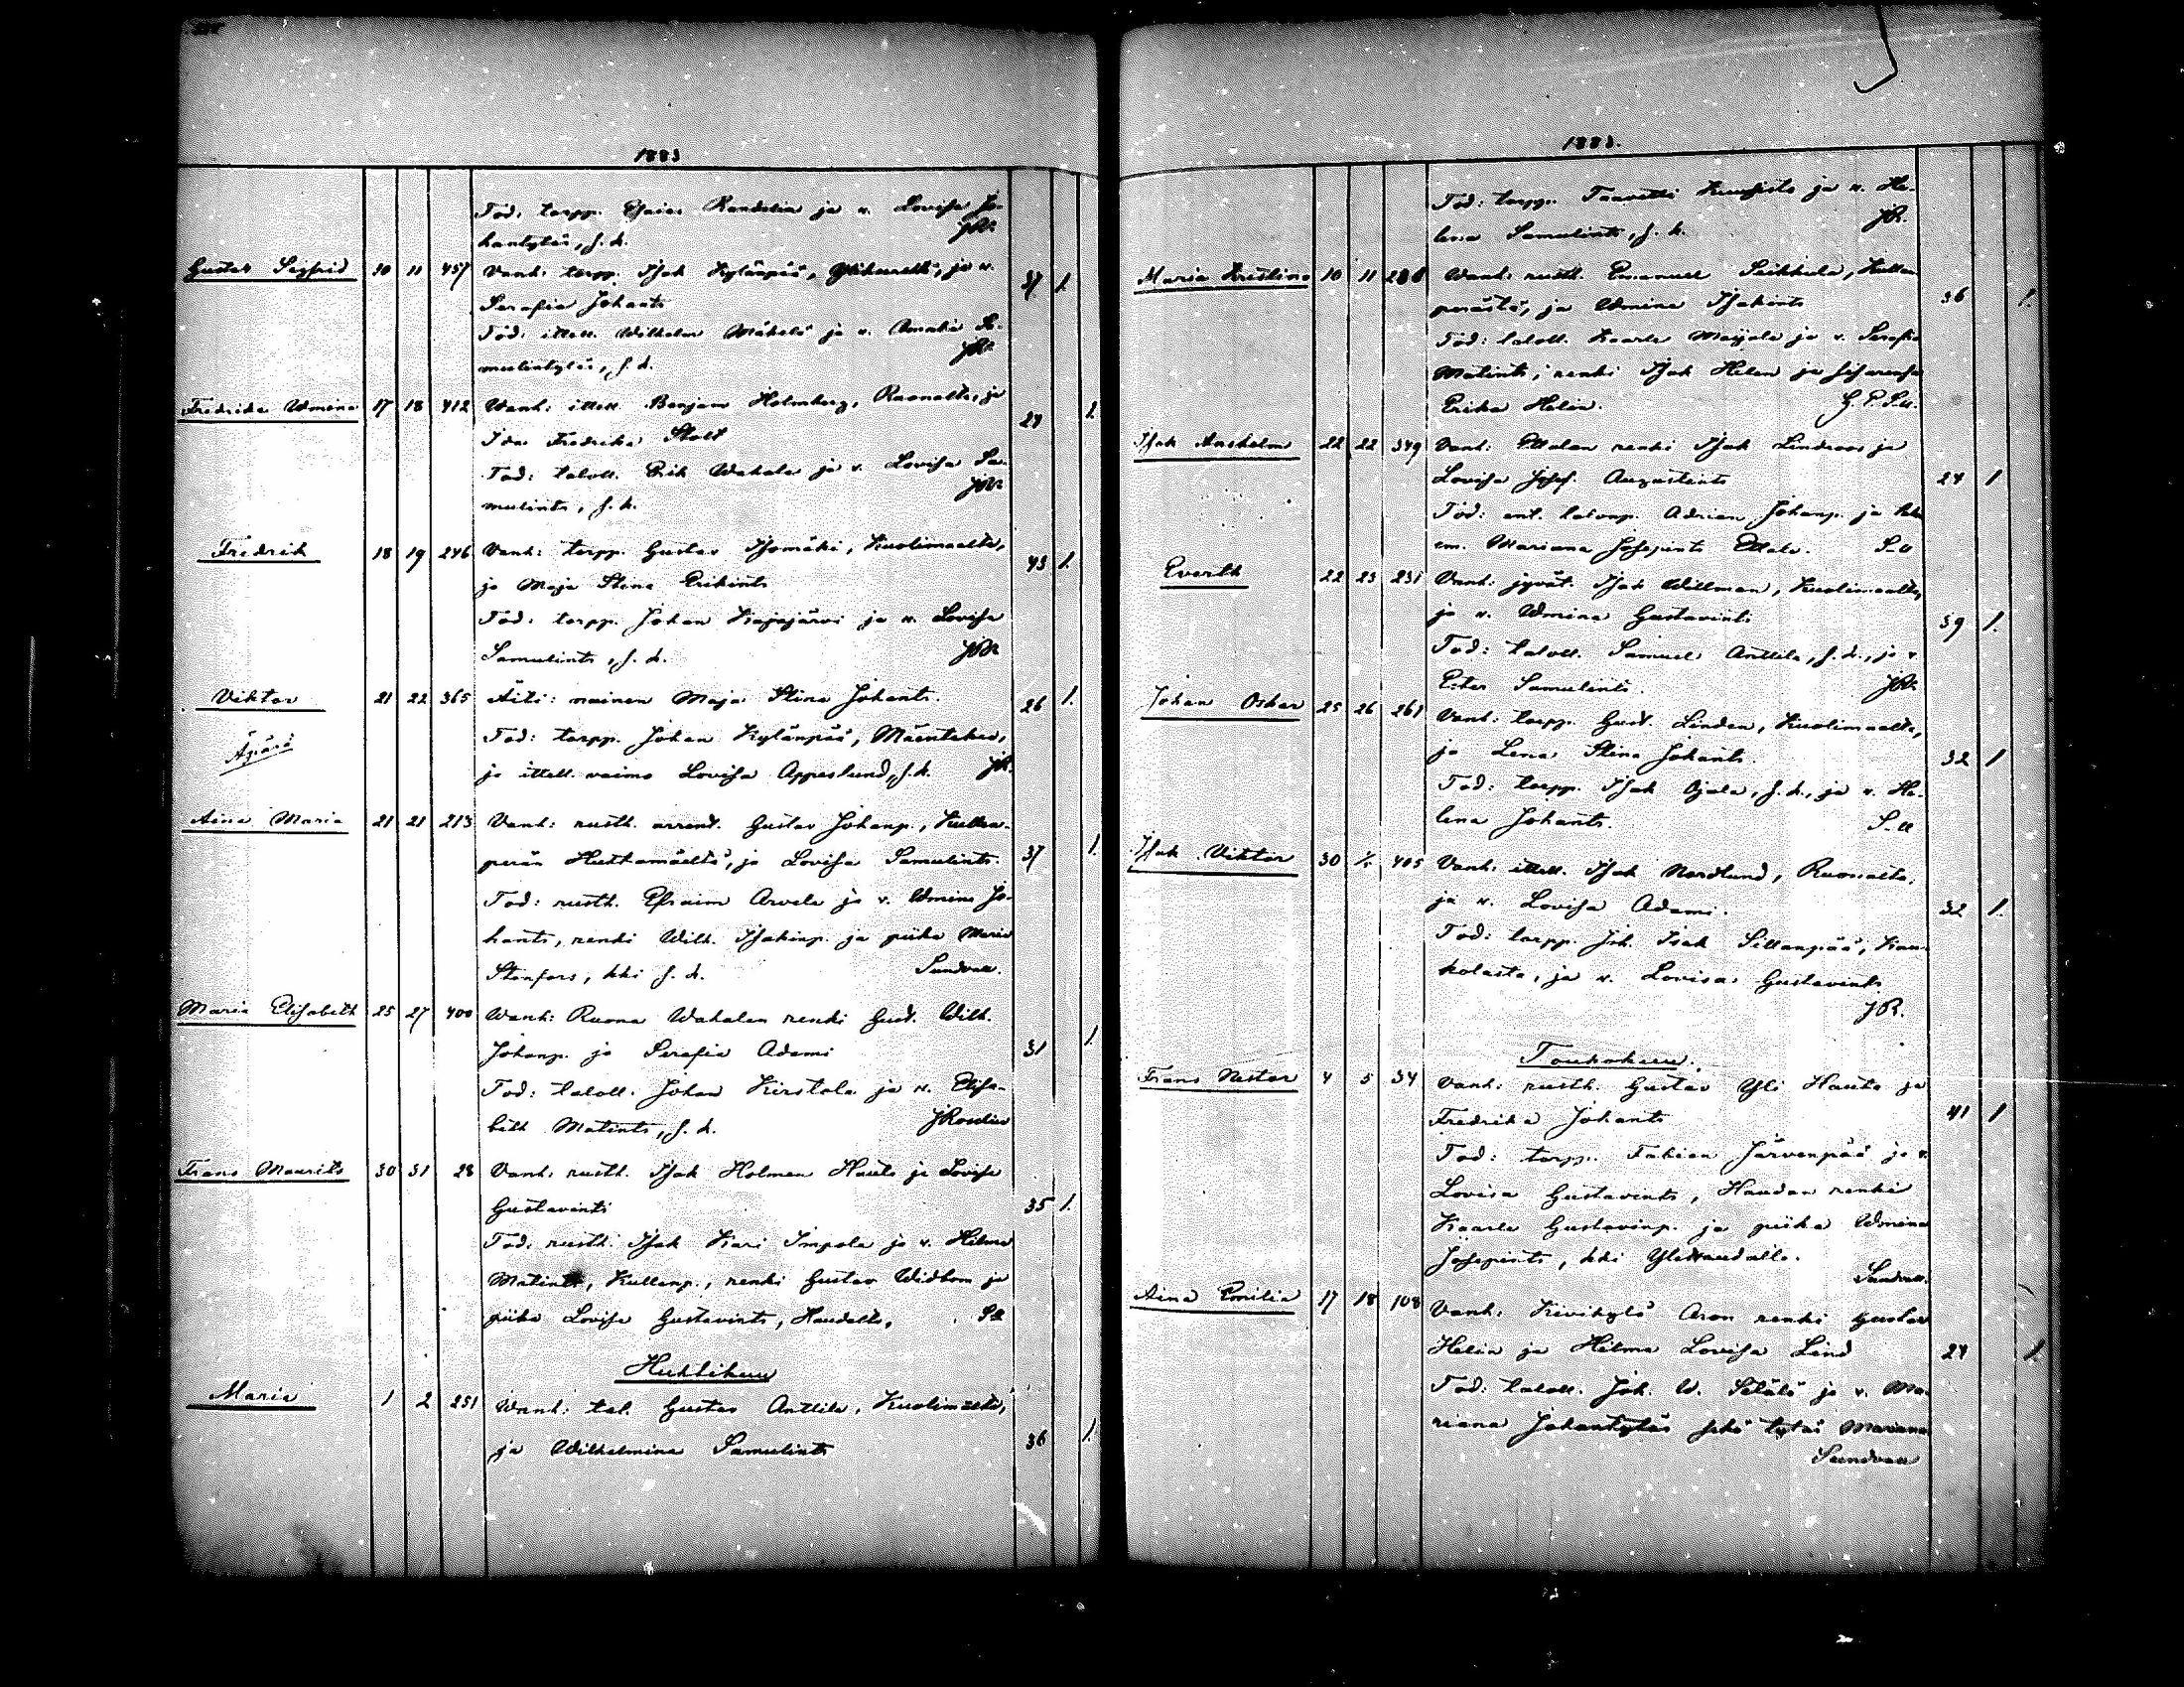 1883
Tod: torpp. Esaias Randelin ja v. Lovisa Jo-
hantytär, s. k. JR.
Gustaf Segfrid 10 11 457 Vanh: torpp. Isak Kylänpää, Ylikurelta, ja v. 37 1.
Serafia Johants
Tod: ittell. Wilhelm Mäkelä ja v. Amalia Sa-
muelintytär, s. k. JR.
Fredrika Wmina 17 18 412 Wanh: ittell. Benjam Holmberg, Ruonalta, ja 24 1.
Ida Fredrika Stolt
Tod: taloll. Erik Wahala ja v. Lovisa Sa-
mulints, s. k. JR.
Fredrik 18 19 246 Vanh: torpp. Gustav Isomäki, Kuolimaalta, 43 1.
ja Maja Stina Erikints
Tod: torpp. Johan Kajajärvi ja v. Lovisa
Samulints, s. k. JR.
Viktor 21 22 365 Äiti: nainen Maja Stina Johants. 26 1.
Äpärä Tod: torpp. Johan Kylänpää, Mäentaka,
ja ittell. vaimo Lovisa Appeslund, s. k. JR.
Aina Maria 21 21 213 Vanh: rusth. arrent. Gustav Johanp., Kullan-
perän Huhtamäeltä, ja Lovisa Samulints. 37 1.
Tod: rusth. Efraim Arvela ja v. Wmina Jo-
hants, renki Wilh. Isakinp. ja piika Maria
Stenfors, kki s. k. Sundvall.
Maria Elisabeth 25 27 400 Wanh: Ruona Wahalan renki Gust. Wilh.
Johanp. ja Serafia Adami 31 1.
Tod: taloll. Johan Kirstala ja v. Elisa-
beth Matints, s. k. JRoselin
Frans Maurits 30 31 28 Vanh: rusth. Isak Holmen Hauta ja Lovisa
Gustavints 35 1.
Tod: rusth. Isak Kari Impola ja v. Hilma
Matints, Kullanp., renki Gustav Widbom ja
piika Lovisa Gustavints, Haudalta. S-ll
Huhtikuu
Maria 1 2 251 Wanh: tal. Gustav Anttila, Kuolimaalta,
ja Wilhelmina Samulints 36 1.
1883.
Tod: torpp. Taavetti Kuusisto ja v. He-
lena Samulints, s. k. JR.
Maria Kristina 10 11 288 Wanh: rusth. Emanuel Seikkula, Kullan
perästä, ja Wmina Isakints 36 1.
Tod: taloll. Kaarle Maijala ja v. Serafia
Matints; renki Isak Helen ja sisarensa
Erika Helin. G. E. S-ll.
Isak Anshelm 22 22 349 Vanh: Ellalan renki Isak Lindroos ja
Lovisa Josef. Augustints 24 1
Tod: ent. talonp. Adrian Johanp. ja tal.
em. Mariana Josepints Ellala. S-ll
Everth 22 23 231 Vanh: jyvät. Isak Willman, Kuolimaalta,
ja v. Wmina Gustavints 39 1.
Tod: taloll. Samuel Anttila, s. k., ja v.
Ester Samulints. JR.
Johan Oskar 25 26 261 Vanh: torpp. Gust. Linden, Kuolimaalta,
ja Lena Stina Johants. 32 1
Tod: torpp. Isak Ojala, s. k., ja v. He-
lena Johants. S-ll
Isak Viktor 30 1/5 405 Vanh: ittell. Isak Nordlund, Ruonalta,
ja v. Lovisa Adami. 32 1.
Tod: torpp. Joh. Isak Sillanpää, Kau-
kolasta, ja v. Lovisa Gustavints
JR.
Toukokuu.
Frans Nestor 4 5 34 Vanh: rusth. Gustav Yli Hauta ja
Fredrika Johants 41 1
Tod: torpp. Fabian Järvenpää ja v.
Lovisa Gustavints, Haudan renki
Kaarle Gustavinp. ja piika Wmina
Josepints, kki Ylihaudalla.
Sundvall.
Aina Emilia 17 18 108 Vanh: Kivikylä Aron renki Gustav
Helin ja Hilma Lovisa Lind 24 1.
Tod: taloll. Joh. W. Sälälä ja v. Ma-
riana Johantytär sekä tytär Mariana
Sundvall